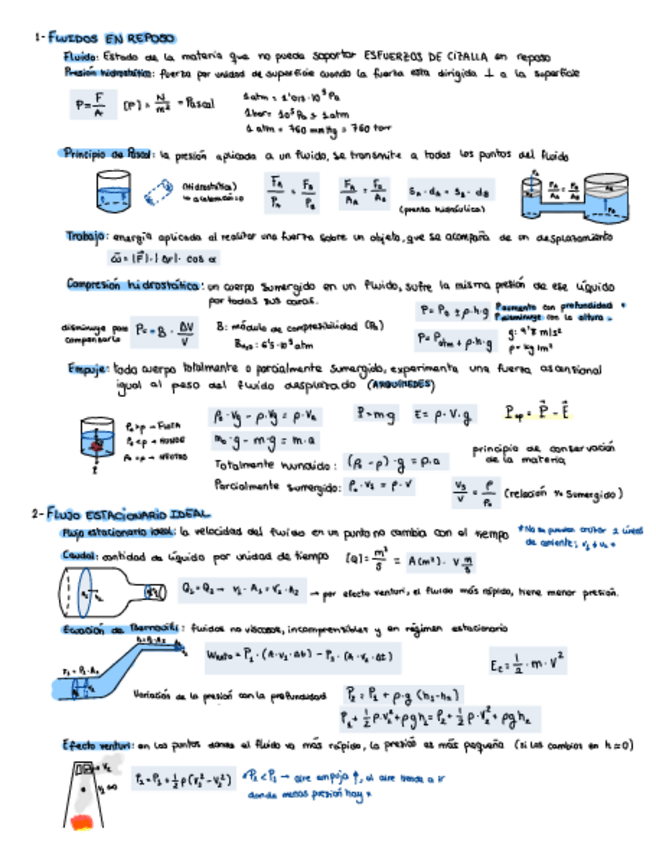 1- FLUIDOS EN REPOSO
Fluido: Estado de la materia que no puede soportar ESFUERZOS DE CIZALLA en reposo
Presión hidrostática: fuerza por unidad de superficie cuando la fuerza esta dirigida ⊥ a la superficie
P = F/A [P] = N/m² = Pascal
1 atm = 1'013·10⁵ Pa
1 bar = 10⁵ Pa ≃ 1 atm
1 atm = 760 mmHg = 760 torr
Principio de Pascal: la presión aplicada a un fluido, se transmite a todos los puntos del fluido
(Hidrostática)
aceleración = 0
(prensa hidráulica)
Trabajo: energía aplicada al realizar una fuerza sobre un objeto, que se acompaña de un desplazamiento
ω = |F|·|Δr|·cos α
Compresión hidrostática: un cuerpo sumergido en un fluido, sufre la misma presión de ese líquido
por todas sus caras.
P = P₀ ± ρ·h·g
P aumenta con profundidad +
P disminuye con la altura -
disminuye para
compensarlo
P = -B · ΔV/V
B: módulo de compresibilidad (Pa)
P = Patm + ρ·h·g
g: 9'8 m/s²
ρ = kg/m³
Empuje: todo cuerpo totalmente o parcialmente sumergido, experimenta una fuerza ascensional
igual al peso del fluido desplazado (ARQUÍMEDES)
P = m·g
E = ρ·V·g
Pap = P - E
m₀·g - m·g = m·a
Totalmente hundido: (ρ₀ - ρ)·g = ρ·a
principio de conservación
de la materia
Parcialmente sumergido:
(relación % Sumergido)
2- FLUJO ESTACIONARIO IDEAL
Flujo estacionario ideal: la velocidad del fluido en un punto no cambia con el tiempo
* No se pueden cruzar 2 líneas
de corriente;
Caudal: cantidad de líquido por unidad de tiempo [Q] = m³/s = A(m²) · v m/s
Q₁ = Q₂ → v₁·A₁ = v₂·A₂ → por efecto venturi, el fluido más rápido, tiene menor presión.
Ecuación de Bernoulli: fluidos no viscosos, incomprensibles y en régimen estacionario
Wneto = P₁·(A·v₁·Δt) - P₂·(A·v₂·Δt)
Ec = 1/2 · m · V²
Variación de la presión con la profundidad P₂ = P₁ + ρ·g (h₁-h₂)
P₁ + 1/2 ρ·v₁² + ρgh₁ = P₂ + 1/2 ρ·v₂² + ρgh₂
Efecto venturi: en los puntos donde el fluido va más rápido, la presión es más pequeña (si los cambios en h ≃ 0)
P₂ = P₁ + 1/2 ρ (v₁² - v₂²)
* P₂ < P₁ → aire empuja ↑, el aire tiende a ir
donde menos presión hay *